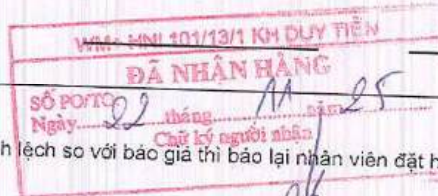 WM+ HNI 101/13/1 KH DUY TIẾN
ĐÃ NHẬN HÀNG
SỐ PO/TO
Ngày 22 tháng 11 năm 25
Chữ ký người nhận
h lệch so với báo giá thì báo lại nhân viên đặt h